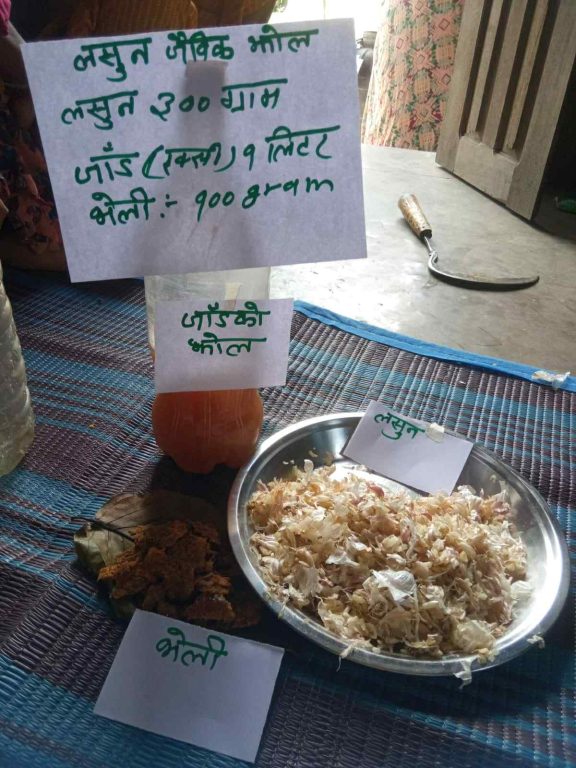 लसुन जैविक झोल
लसुन ३०० ग्राम
जाँड (रक्सी) १ लिटर
भेली :- १०० gram
जाँडको
झोल
लसुन
भेली